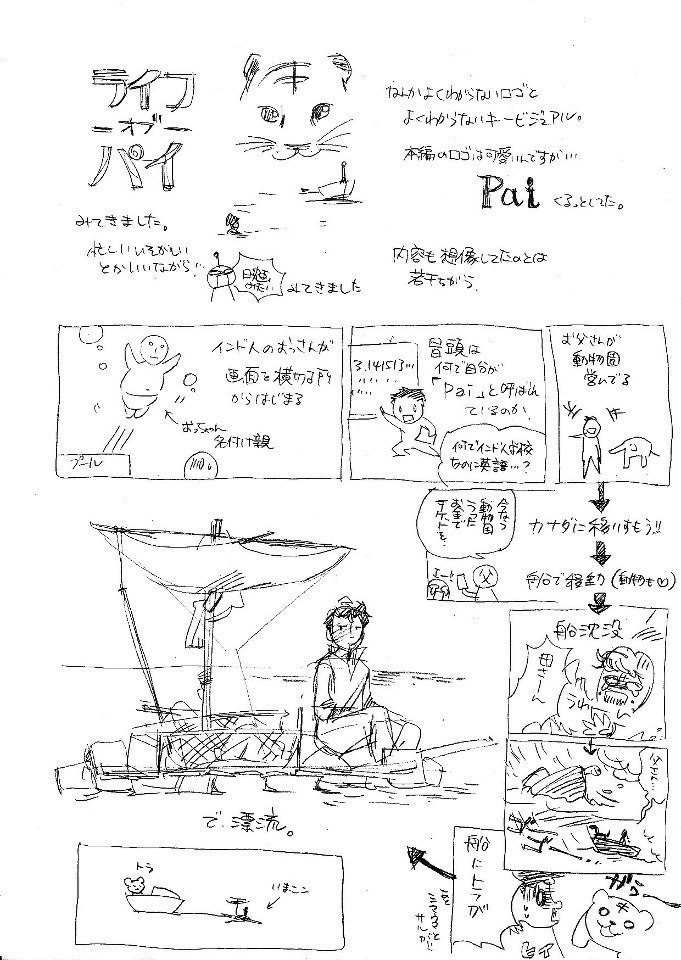 ライフ
オブ
パイ
なんかよくわからないロゴと
よくわからないキービジュアル。
本編のロゴは可愛いんですがい
Pai くるっとしてた。
みてきました。
忙しいいそがしい
とかいいながら!
みてきました
内容も想像してたのとは
若干ちがう。
インド人のおっさんが
画面を横切る所
からはじまる
おっちゃん
名付け親
プール
3.141513...
冒頭は
何で自分が
「Pai」と呼ばれ
ているのか。
何でインド人学校
なのに英語…?
お父さんが
動物園
営んでる
カナダに移いすもう!!
今なら
動物園
お車で
チケットを
エー!!
父
船で移動(動物も♡)
船沈没
母さーん
うわー
父さん…
で、漂流。
船に トラが
ガウ
トラ
いまここ